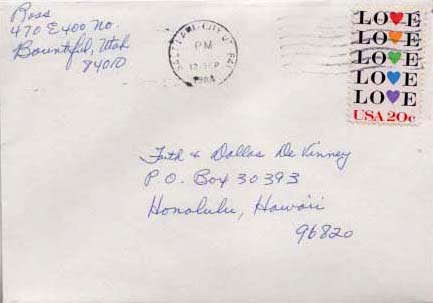 Ross
470 E 400 No.
Bountiful, Utah
84010
SALT LAKE CITY UT
PM
12 SEP
1984
LOVE
LOVE
LOVE
LOVE
LOVE
USA 20c
& Dallas De Vinney
P.O. Box 30393
Honolulu, Hawaii
96820